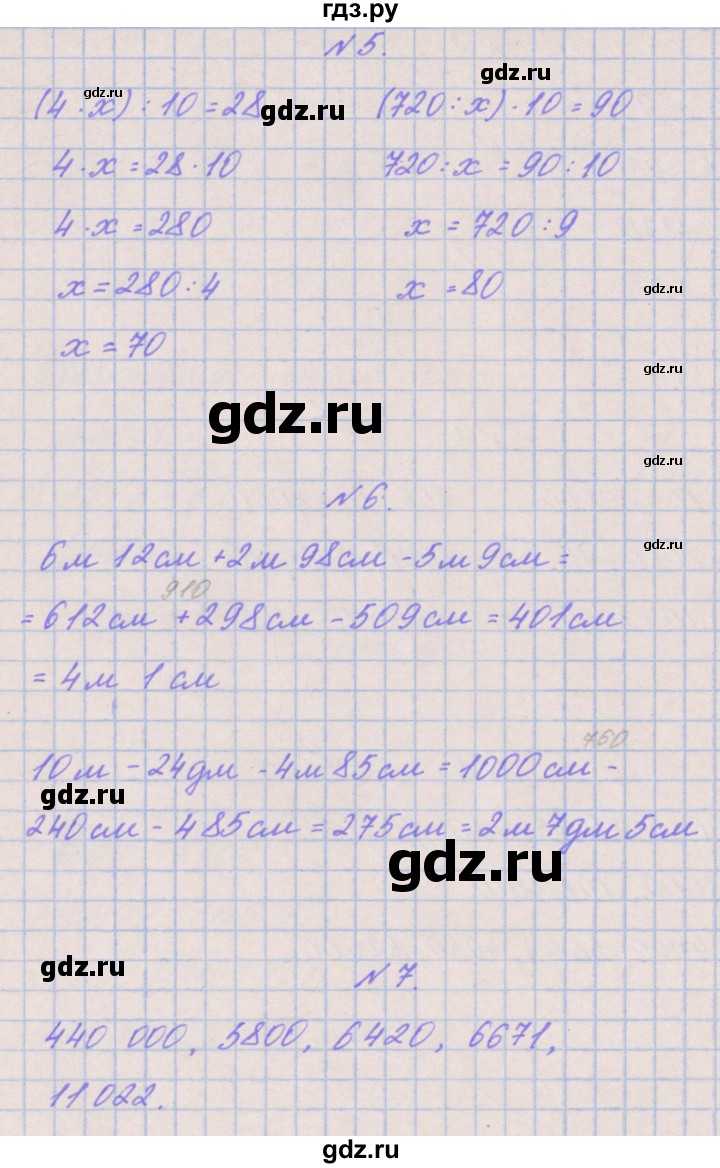 гдз.ру
N 5.
gdz.ru
gdz.ru
gdz.ru
(4 · x) : 10 = 28
4 · x = 28 · 10
4 · x = 280
x = 280 : 4
x = 70
(720 : x) · 10 = 90
720 : x = 90 : 10
x = 720 : 9
x = 80
gdz.ru
gdz.ru
gdz.ru
gdz.ru
N 6.
gdz.ru
6м 12см + 2м 98см - 5м 9см =
910
= 612см + 298см - 509см = 401см
= 4м 1см
760
10м - 24дм - 4м 85см = 1000см -
gdz.ru
240см - 485см = 275см = 2м 7дм 5см
gdz.ru
gdz.ru
N 7.
440 000, 5800, 6420, 6671,
11 022.
gdz.ru